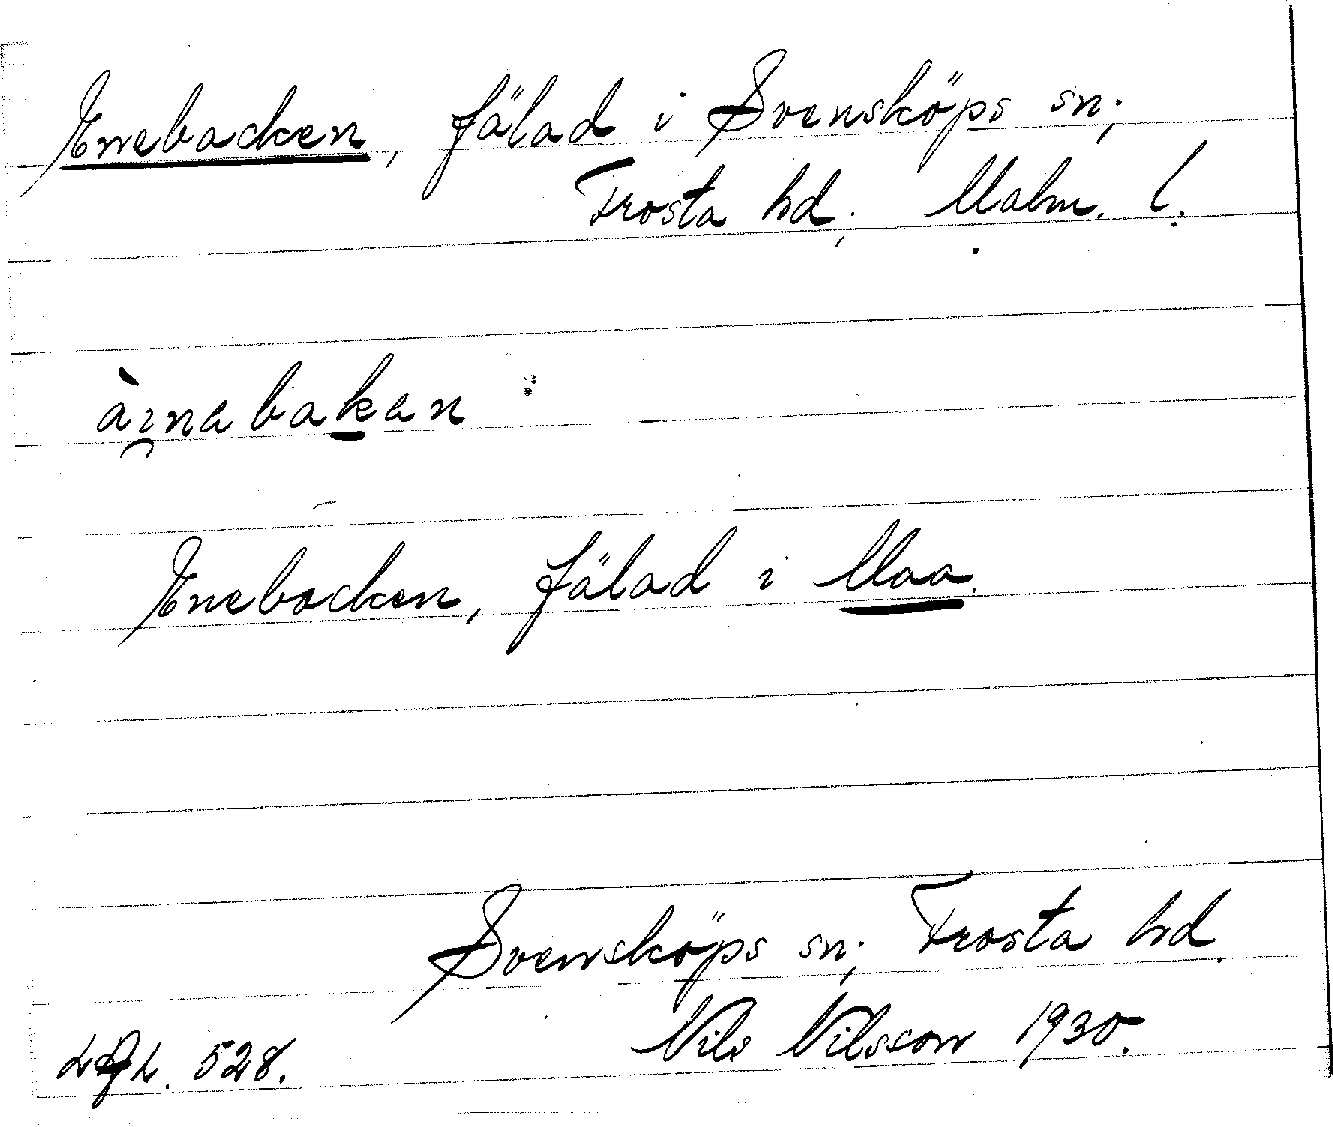 Enebacken, fälad i Svensköps sn;
Frosta hd; Malm. l.
àrnabakan
Enebacken, fälad i Maa.
Svensköps sn; Frosta hd.
Nils Nilsson 1930.
528.